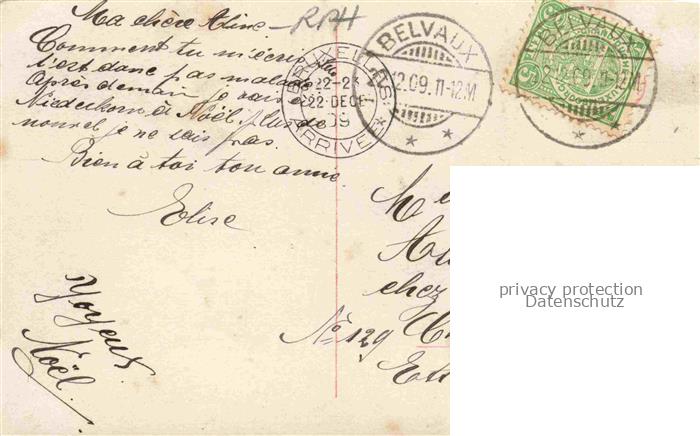 Ma chère Aline -
RPH
Comment tu m'écris
t'est donc pas malade
Après demain je vais
Niederkorn à Noël, plus de
nouvel je ne sais pas.
Bien à toi ton amie
Elise
Joyeux
Noël.
BRUXELLES
22-23
22 DECE
09
ARRIVEE
BELVAUX
12.09.11-12M
BELVAUX
12.09.11-12M
5
chez
No 129
privacy protection
Datenschutz